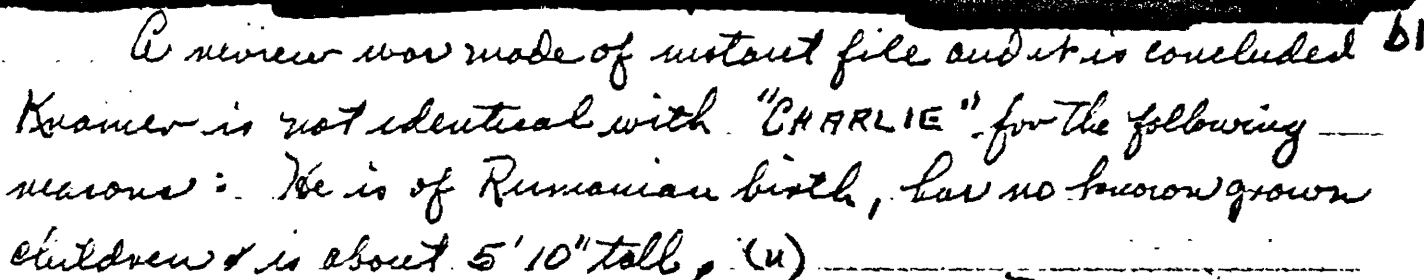 A review was made of instant file and it is concluded b1
Kramer is not identical with "CHARLIE" for the following
reasons: He is of Rumanian birth, has no known grown
children & is about 5'10" tall. (u)